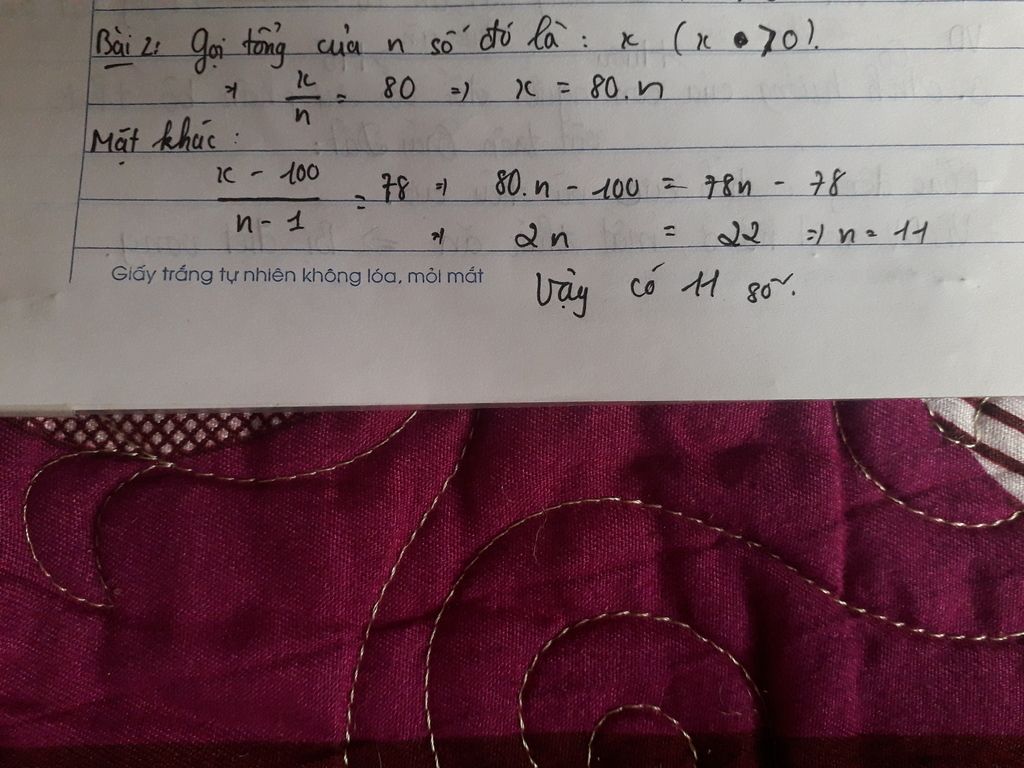 Bài 2: Gọi tổng của n số đó là: x (x > 0).
=> x/n = 80 => x = 80.n
Mặt khác:
x - 100 / n - 1 = 78 => 80.n - 100 = 78n - 78
=> 2n = 22 => n = 11
Giấy trắng tự nhiên không lóa, mỏi mắt
Vậy có 11 số.